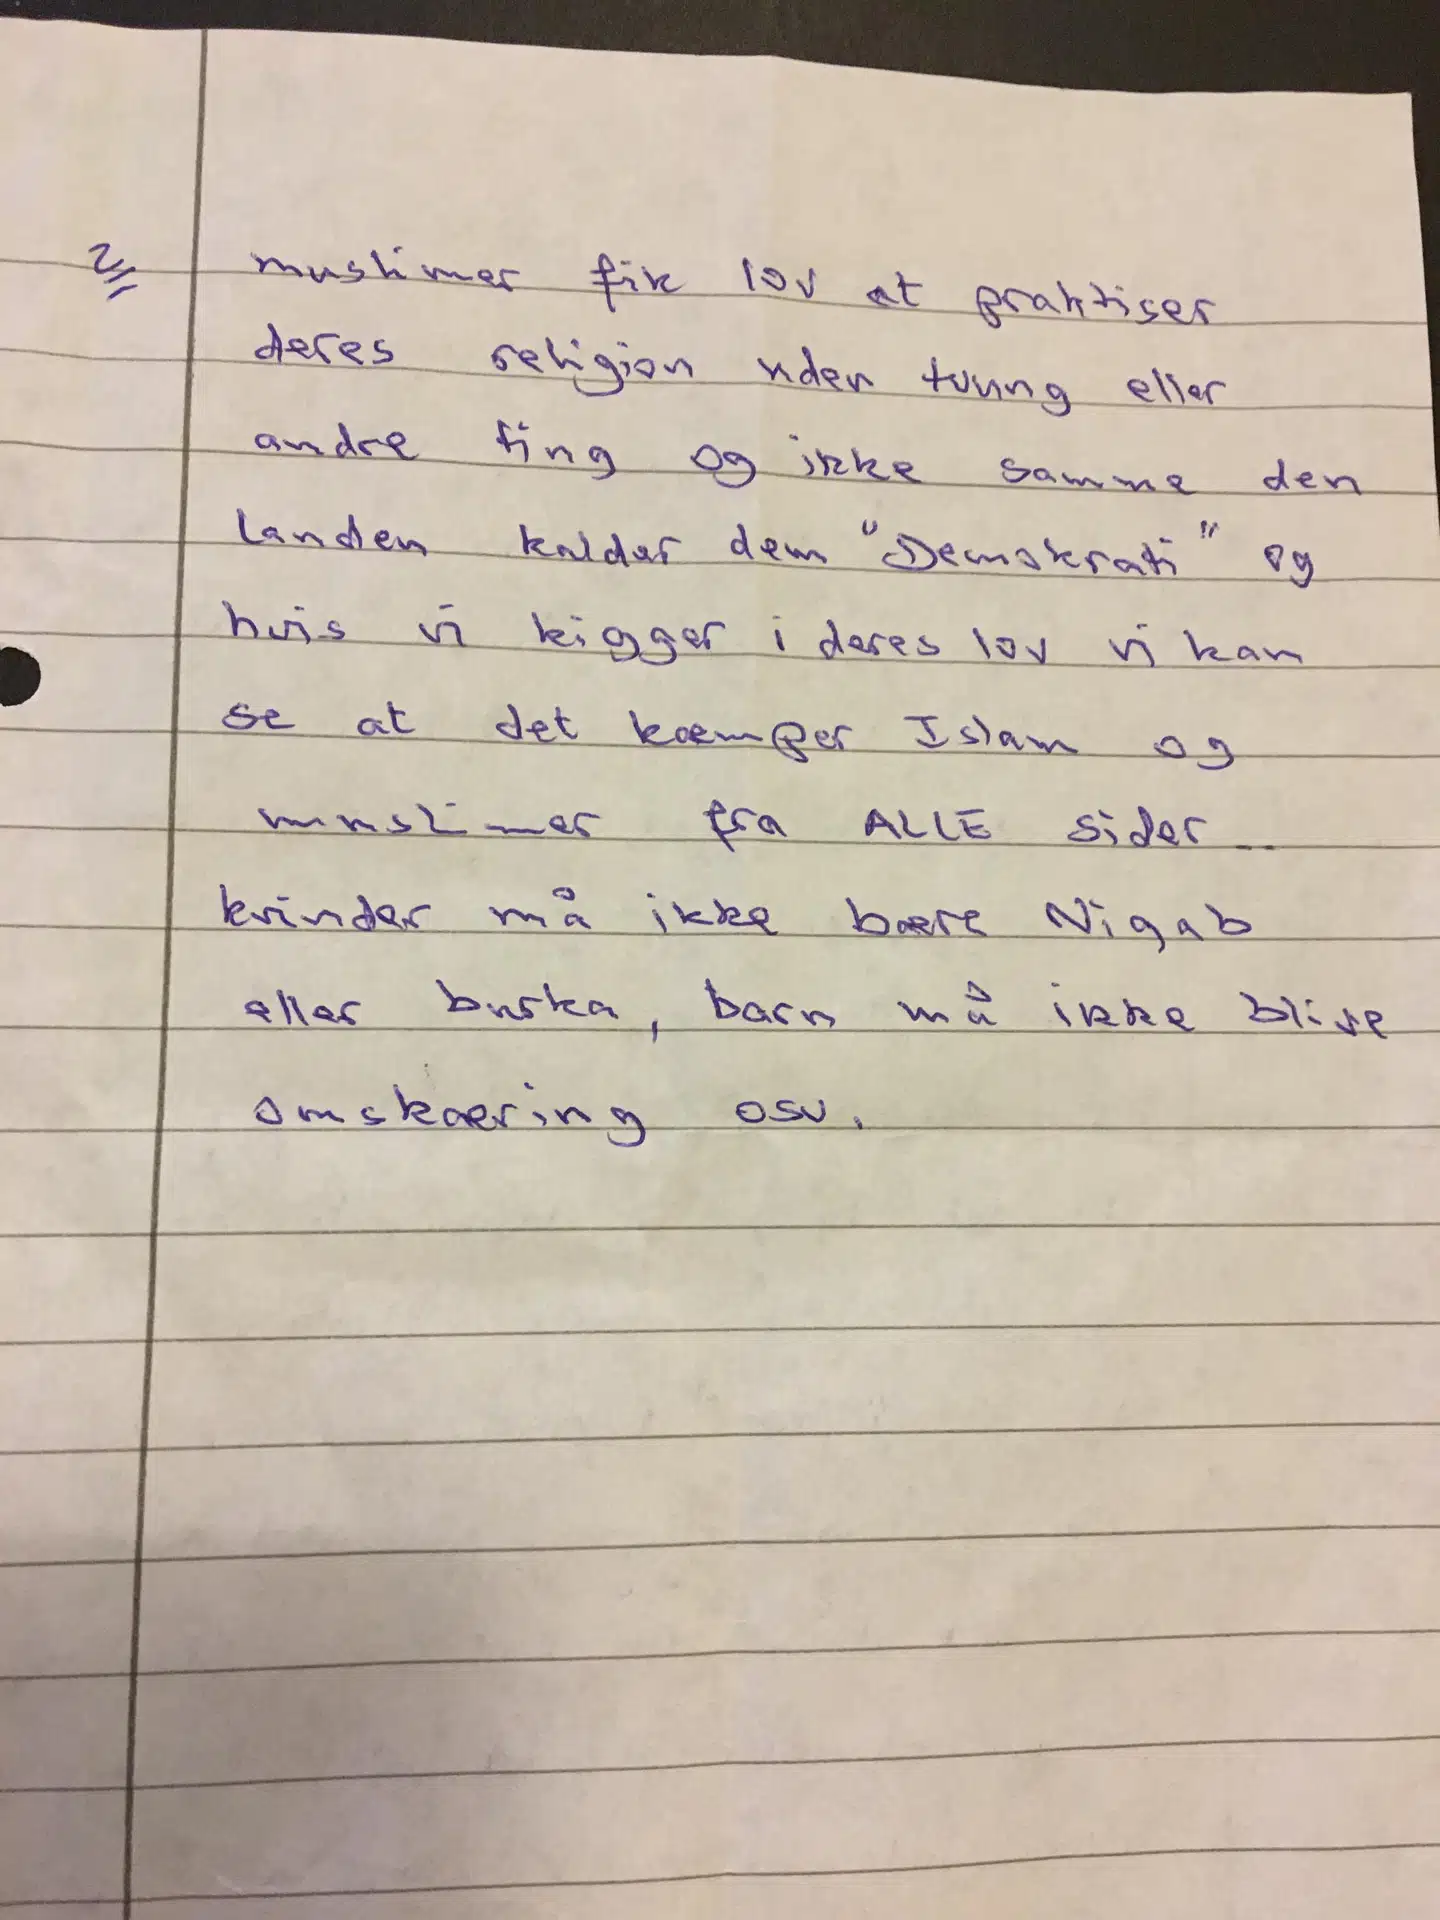 2
muslimer fik lov at praktiser
deres religion uden tvung eller
andre ting og ikke samme den
Landen kalder dem "Demokrati" og
hvis vi kigger i deres lov vi kan
se at det kæmper Islam og
muslimer fra ALLE sider..
kvinder må ikke bære Niqab
eller burka, barn må ikke blive
omskæring osv.